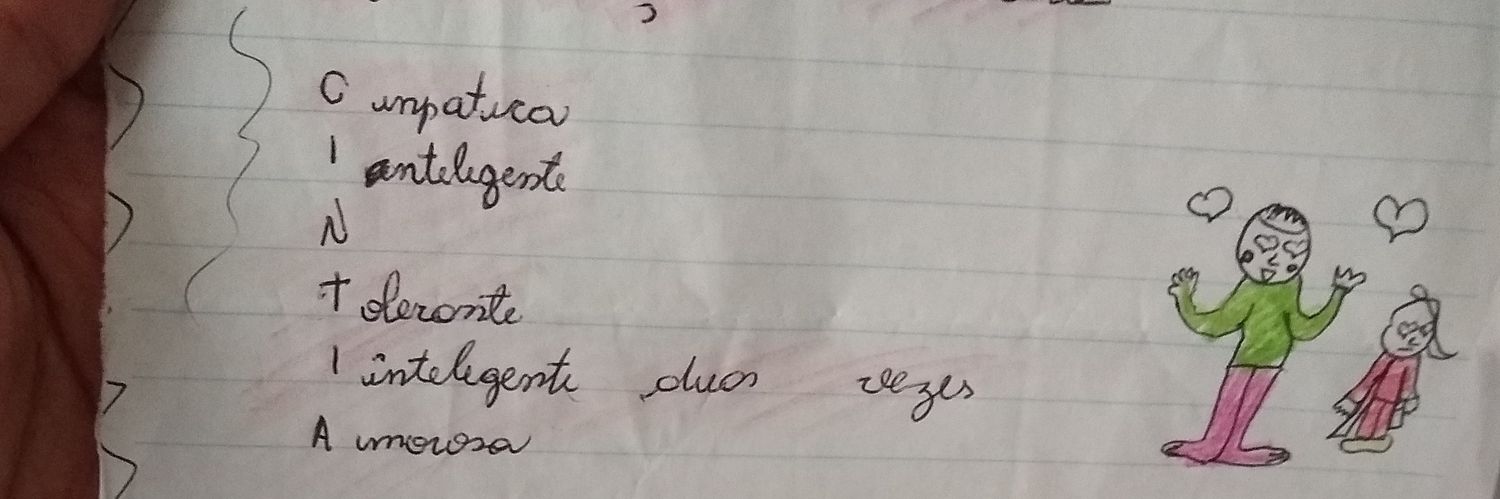 C impatica
I inteligente
N
T olerante
I inteligente duas vezes
A morosa